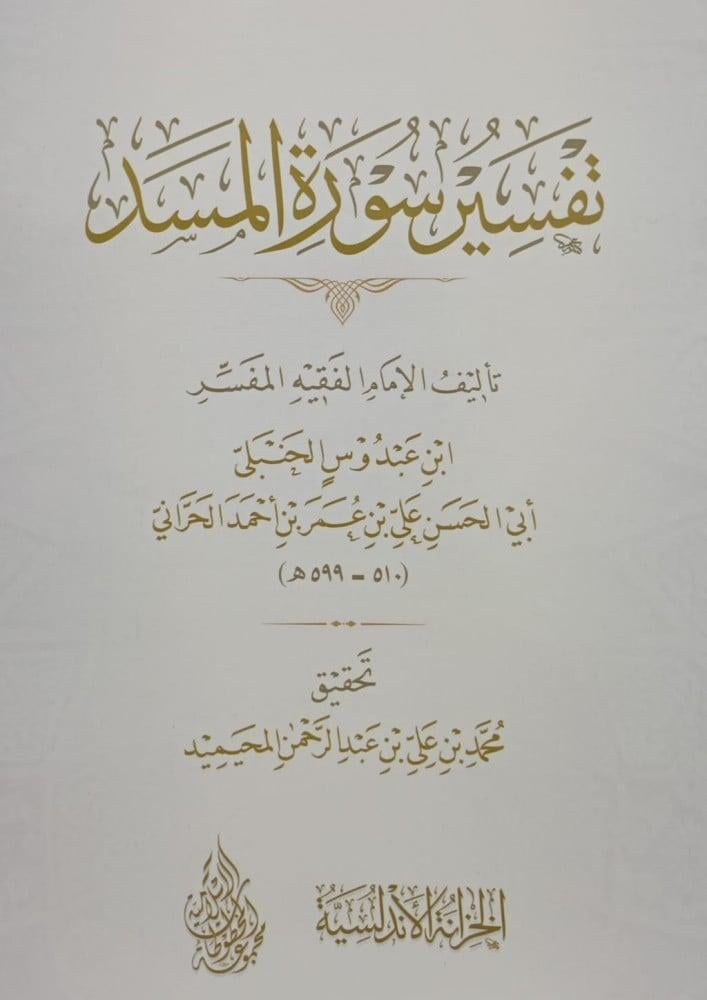 تَفْسِيرُ سُورَةِ المَسَدِ
تأليفُ الإمامِ الفَقِيهِ المفَسِّرِ
ابْنِ عَبْدُوْسٍ الحَنْبَلِيّ
أبي الحَسَنِ عَلِيّ بْنِ عُمَرَ بْنِ أحْمَدَ الحَرَّانِيّ
(٥١٠ - ٥٩٩ هـ)
تَحْقِيْق
مُحَمَّدِ بْنِ عَلِيّ بْنِ عَبْدِ الرَّحْمٰنِ المحَيمِيْد
الخِزَانَةُ الأَنْدَلُسِيَّةُ
مجموعة المخطوطات الإسلامية